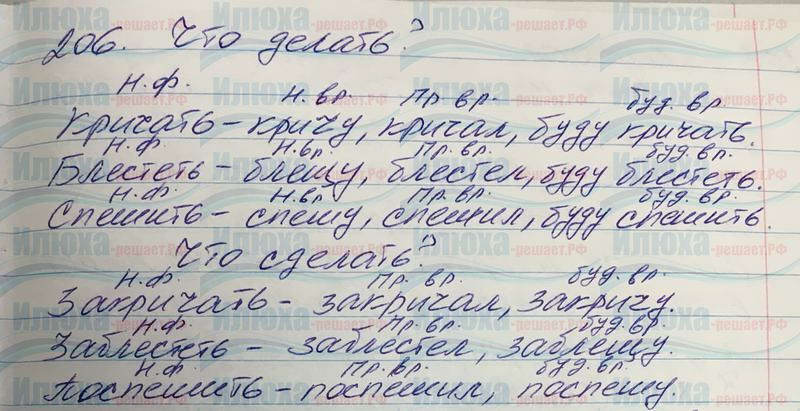 206. Что делать?
Н.ф. Н.вр. Пр.вр. буд.вр.
Кричать – кричу, кричал, буду кричать.
Н.ф. Н.вр. Пр.вр. буд.вр.
Блестеть – блещу, блестел, буду блестеть.
Н.ф. Н.вр. Пр.вр. буд.вр.
Спешить – спешу, спешил, буду спешить.
Что сделать?
Н.ф. Пр.вр. буд.вр.
Закричать – закричал, закричу.
Н.ф. Пр.вр. буд.вр.
Заблестеть – заблестел, заблещу.
Н.ф. Пр.вр. буд.вр.
Поспешить – поспешил, поспешу.
Илюха-решает.РФ